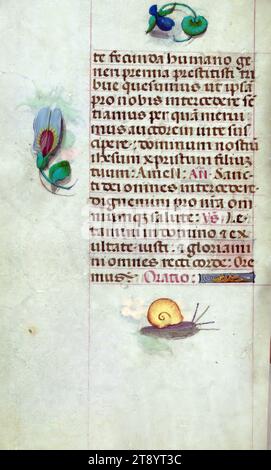 te fecunda humano ge
neri premia prestitisti tri
bue quesumus ut ipsā
pro nobis intercedere sē
tiamus per quā merui
mus auctorem vite sus
cipere: dominum nostrū
ihesum xpristum filium
tuum: Amen: An̄: Sanc
ti dei omnes intercedere
dignemini pro nrā om
niumq̄ salute: Vs̄: Le
tamini in domino & ex
ultate iusti: & gloriami
ni omnes recti corde: Ore
mus: Oratio:
alamy
Image ID: 2T8YT3C
www.alamy.com